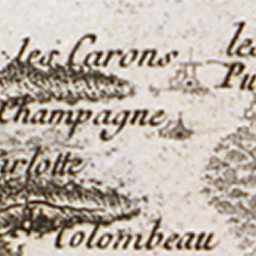 les Carons
les
Pu
Champagne
arlotte
Colombeau